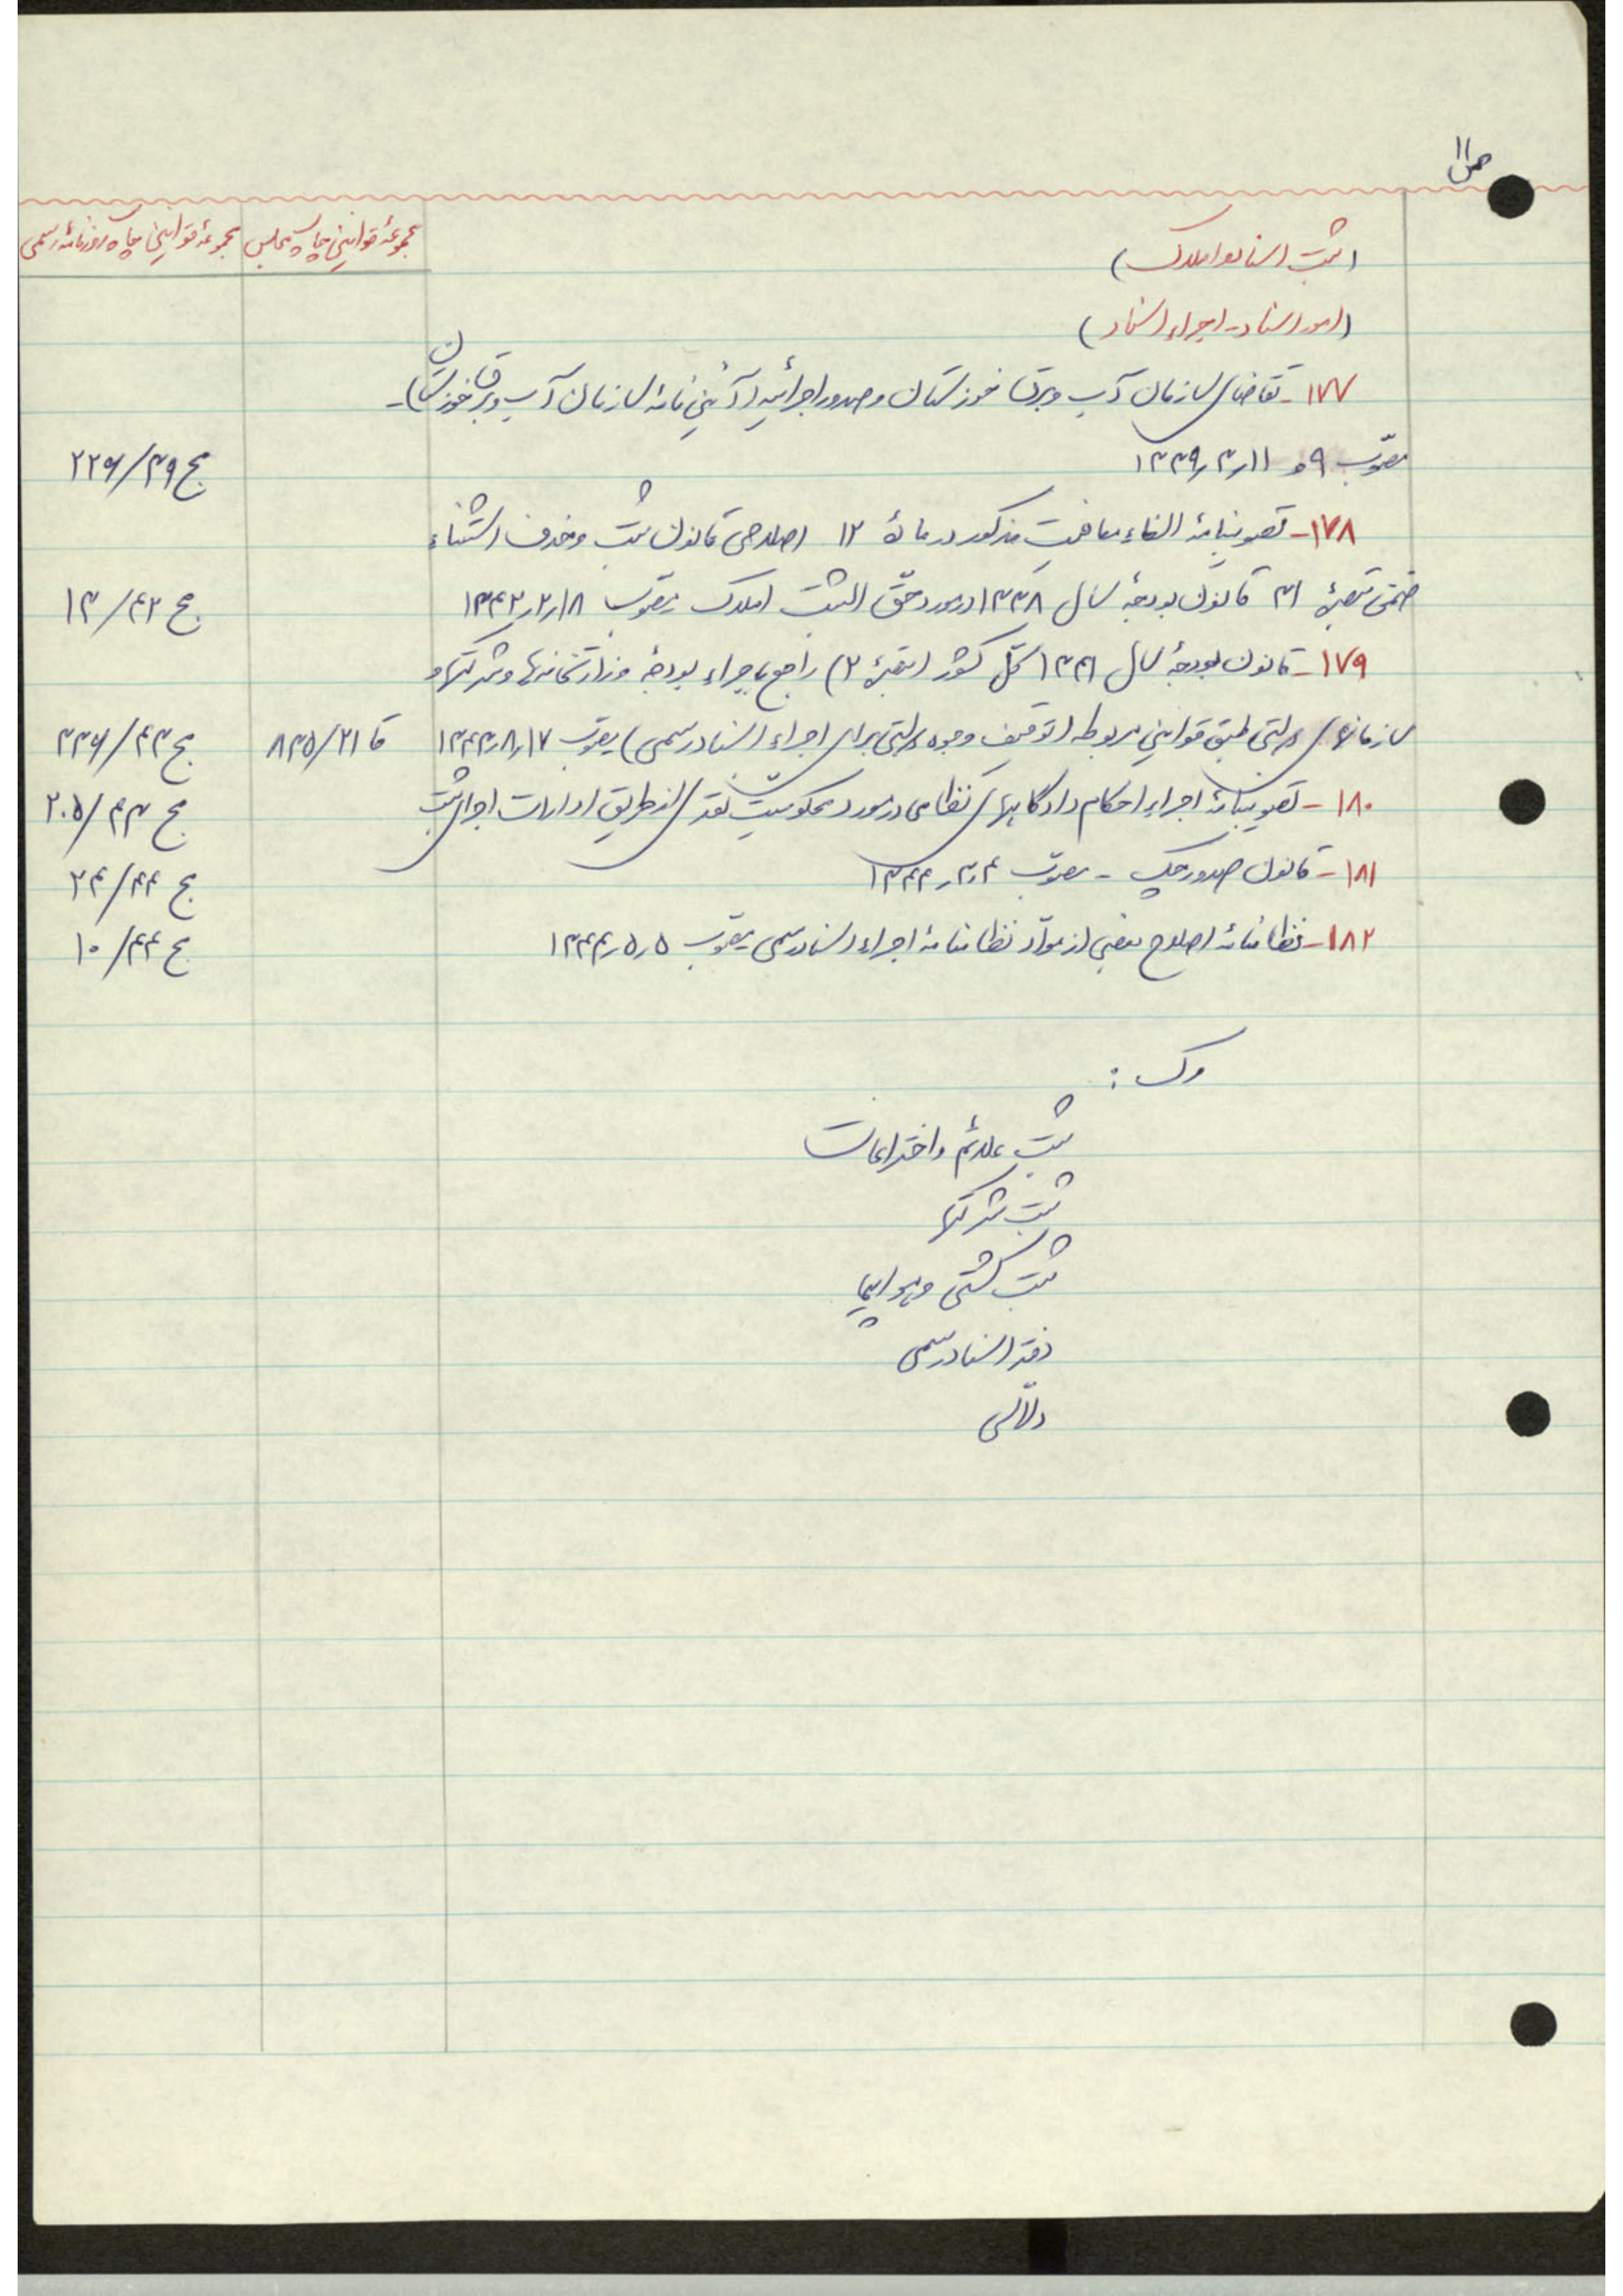 ص ۱۱
مجموعهٔ قوانین چاپ مجلس
مجموعهٔ قوانین چاپ روزنامه رسمی
(ثبت اسناد و املاک)
(امور اسناد - اجراء اسناد)
۱۷۷ - تقاضای سازمان آب و برق خوزستان و صدور اجرائیه (آئین نامهٔ سازمان آب و برق خوزستان) -
مصوّب ۹ و ۱۱ر۳ر۱۳۳۹
مج ۳۹/۲۲۶
۱۷۸ - تصویبنامهٔ الغاء معافیت مذکور در مادهٔ ۱۲ اصلاحی قانون ثبت و حذف استثناء
ضمن تبصرهٔ ۳۱ قانون بودجهٔ سال ۱۳۳۸ در مورد حقّ الثبت املاک مصوّب ۱۸ر۲ر۱۳۴۲
مج ۴۲/۱۳
۱۷۹ - قانون بودجهٔ سال ۱۳۴۱ کلّ کشور (تبصرهٔ ۲) راجع باجراء بودجهٔ وزارتخانه‌ها و شرکتها و
سازمانهای دولتی طبق قوانین مربوطه (توقیف وجوه دولتی برای اجراء اسناد رسمی) مصوّب ۱۷ر۸ر۱۳۴۳
قا ۲۱/۸۳۵
مج ۴۳/۳۳۶
۱۸۰ - تصویبنامهٔ اجراء احکام دادگاههای نظامی در مورد محکومیت نقدی از طریق ادارات اجرای ثبت
مج ۴۳/۲۰۵
۱۸۱ - قانون صدور چک - مصوّب ۴ر۳ر۱۳۴۴
مج ۴۴/۲۴
۱۸۲ - نظامنامهٔ اصلاح بعضی از موادّ نظامنامهٔ اجراء اسناد رسمی مصوّب ۵ر۵ر۱۳۴۴
مج ۴۴/۱۰
رک :
ثبت علائم و اختراعات
ثبت شرکتها
ثبت کشتی و هواپیما
دفتر اسناد رسمی
دلّالی